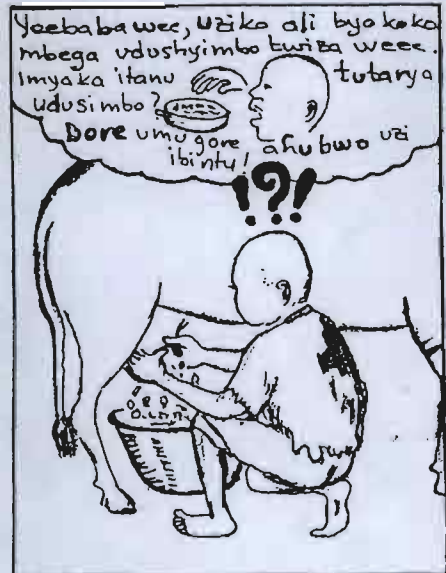 Yeebabawee, uziko ali byo koko
mbega udushyimbo twiza weee.
Imyaka itanu tutarya
udusimbo?
Dore umugore ahubwo uzi
ibintu!
!?!